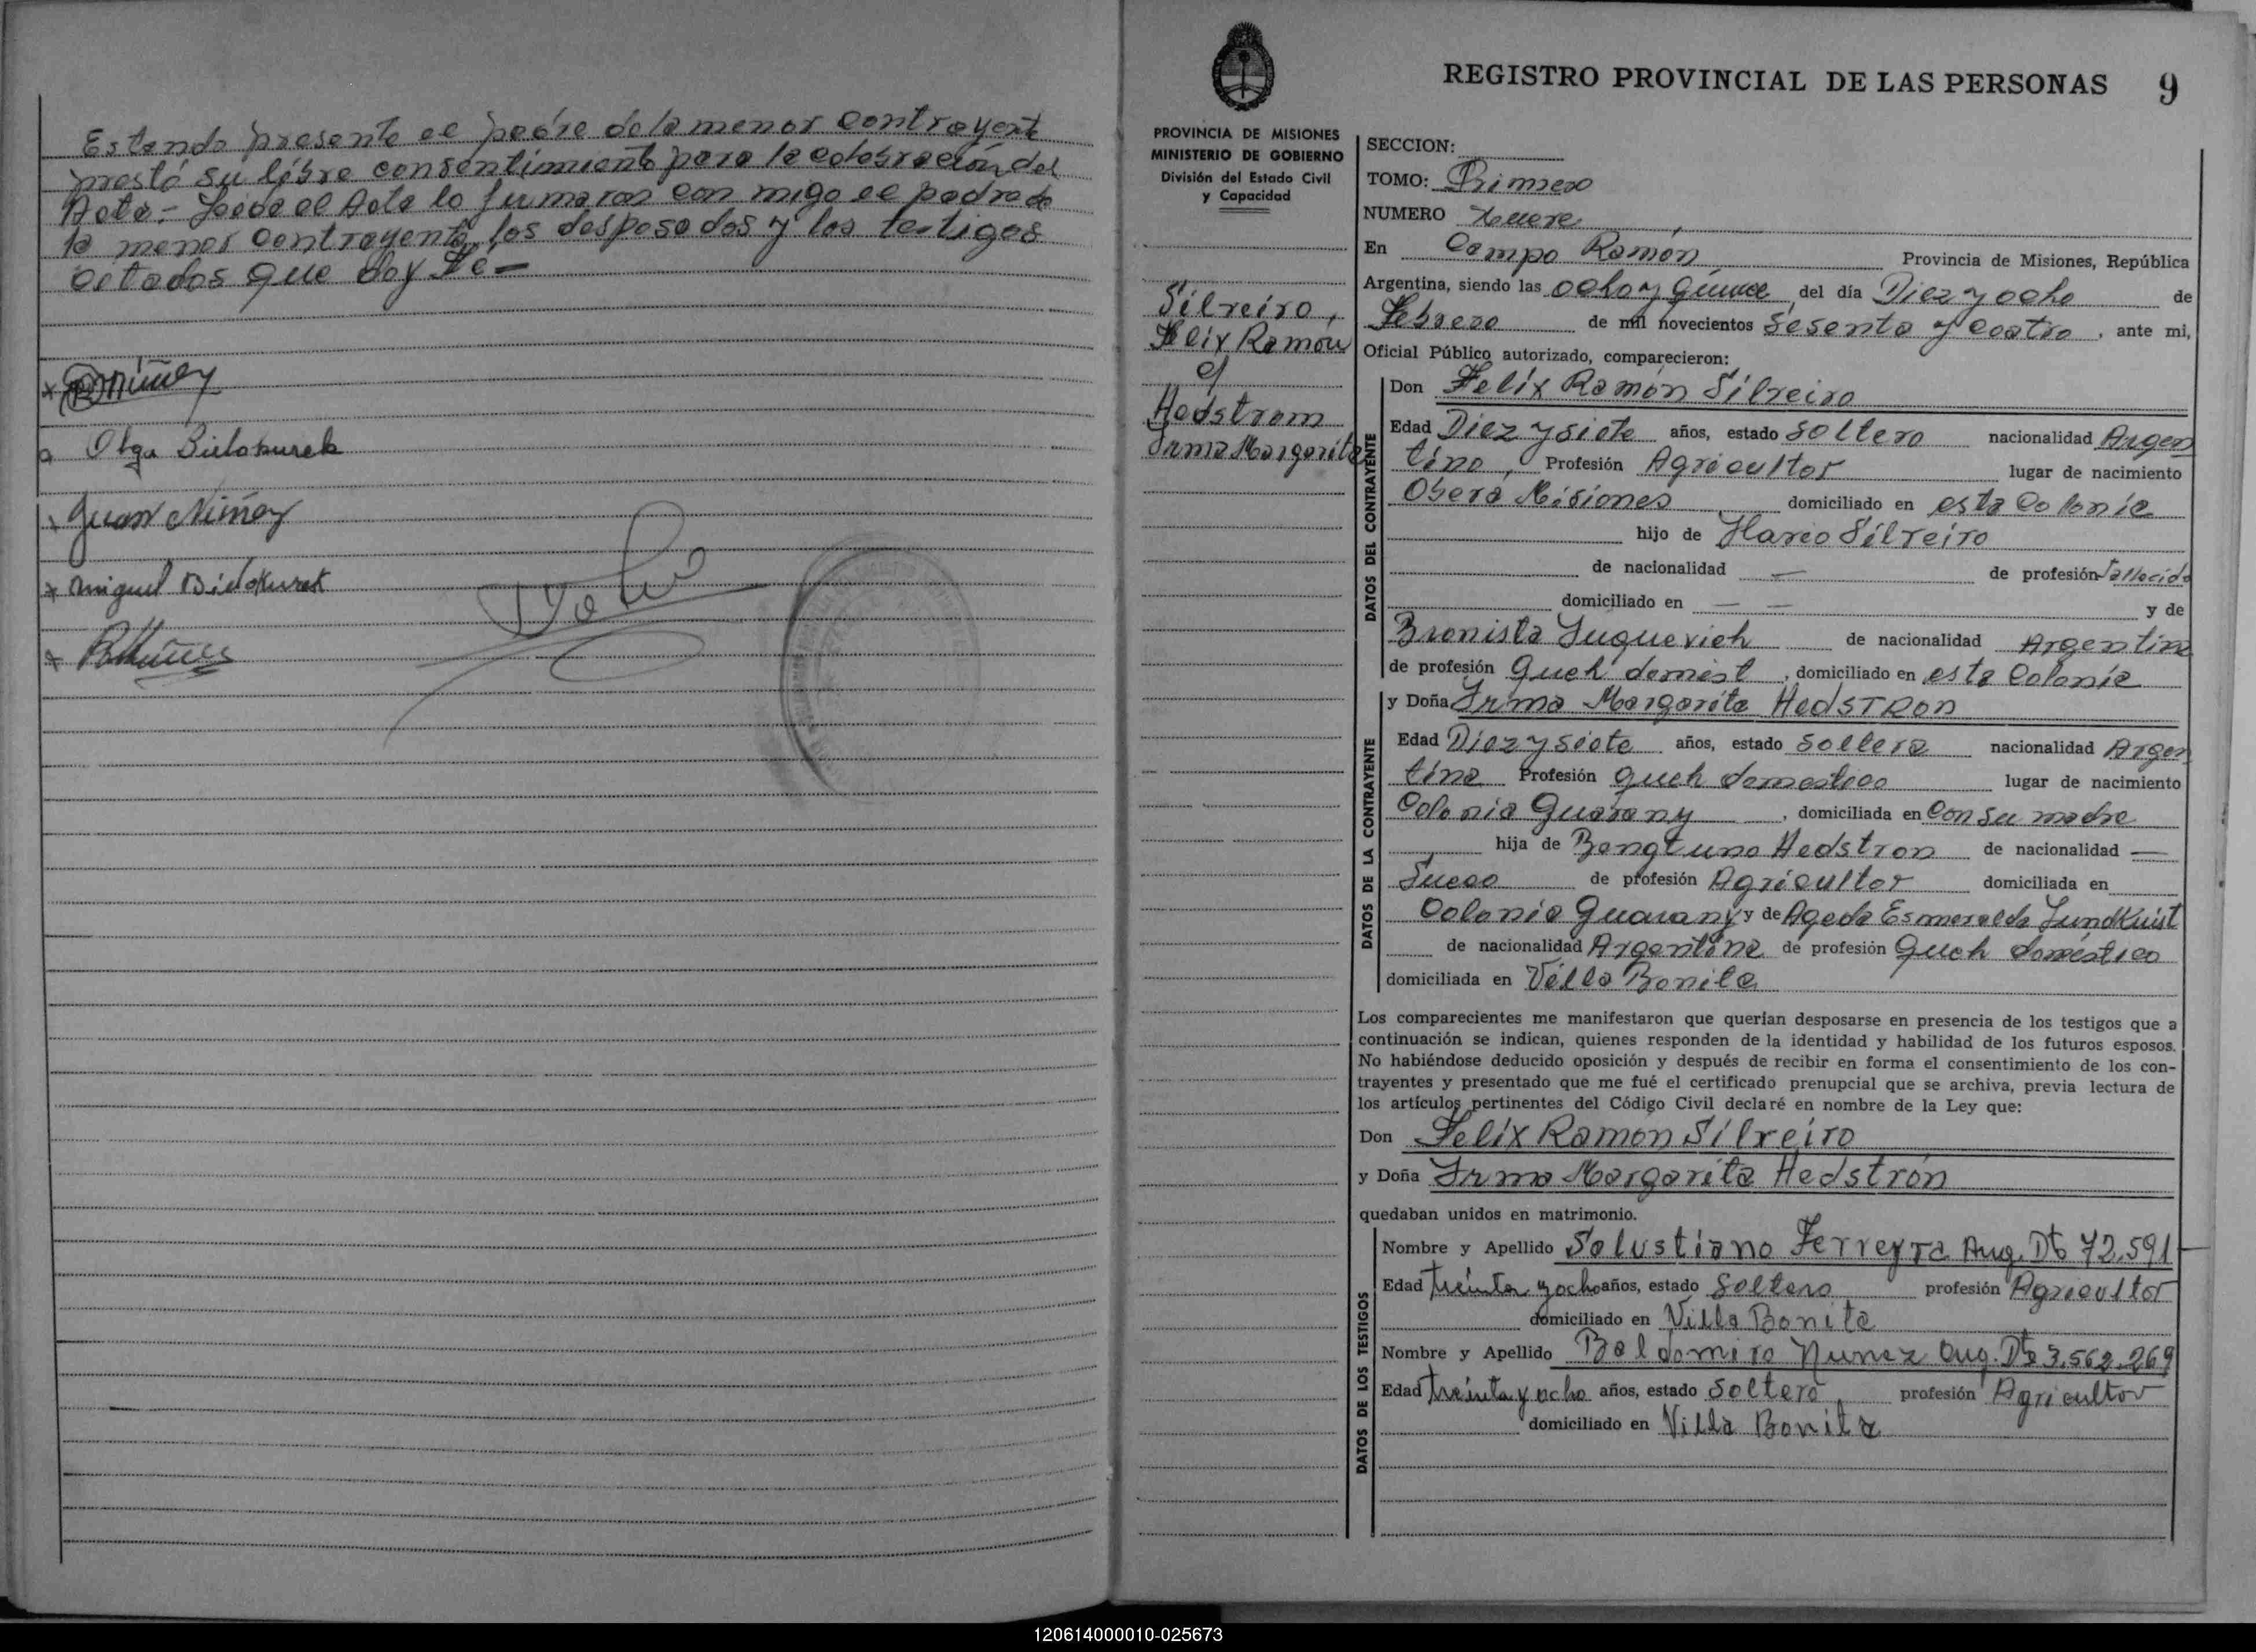 Estando presente el padre de la menor contrayente
prestó su libre consentimiento para la celebración del
Acta.- Leida el Acta lo firmaron con migo el padre de
la menor contrayente, los desposados y los testigos
citados que doy Fé-
Olga Bielakurek
Juan Núñez
Miguel Bielokurek
REGISTRO PROVINCIAL DE LAS PERSONAS 9
PROVINCIA DE MISIONES
MINISTERIO DE GOBIERNO
División del Estado Civil
y Capacidad
Silveiro,
Felix Ramón
c/
Hedstrom
Irma Margarita
SECCION:
TOMO: Primero
NUMERO Nueve
En Campo Ramón Provincia de Misiones, República
Argentina, siendo las ocho y quince del día Diez y ocho de
Febrero de mil novecientos Sesenta y coatro, ante mi,
Oficial Público autorizado, comparecieron:
DATOS DEL CONTRAYENTE
Don Felix Ramón Silveiro
Edad Diez y siete años, estado soltero nacionalidad Argen
tino, Profesión Agricultor lugar de nacimiento
Oberá Misiones domiciliado en esta Colonia
hijo de Mario Silveiro
de nacionalidad — de profesión Fallecido
domiciliado en — — y de
Bronisla Juquevich de nacionalidad Argentina
de profesión Queh domést, domiciliado en esta Colonia
DATOS DE LA CONTRAYENTE
y Doña Irma Margarita HedSTRON
Edad Diez y siete años, estado soltera nacionalidad Argen
tina Profesión queh domestico lugar de nacimiento
Colonia Guarany, domiciliada en con su madre
hija de Bengtuno Hedstron de nacionalidad —
Sueco de profesión Agricultor domiciliada en
Colonia Guarany y de Ageda Esmeralda Lundkuist
de nacionalidad Argentina de profesión Queh doméstico
domiciliada en Villa Bonita
Los comparecientes me manifestaron que querían desposarse en presencia de los testigos que a
continuación se indican, quienes responden de la identidad y habilidad de los futuros esposos.
No habiéndose deducido oposición y después de recibir en forma el consentimiento de los con-
trayentes y presentado que me fué el certificado prenupcial que se archiva, previa lectura de
los artículos pertinentes del Código Civil declaré en nombre de la Ley que:
Don Felix Ramon Silveiro
y Doña Irma Margarita Hedstrón
quedaban unidos en matrimonio.
DATOS DE LOS TESTIGOS
Nombre y Apellido Solustiano Ferreyra Arg. Dto 72.591
Edad treinta y ocho años, estado Soltero profesión Agricultor
domiciliado en Villa Bonita
Nombre y Apellido Baldomiro Nunez Arg. Dto 3.562.269
Edad treinta y ocho años, estado soltero profesión Agricultor
domiciliado en Villa Bonita
120614000010-025673